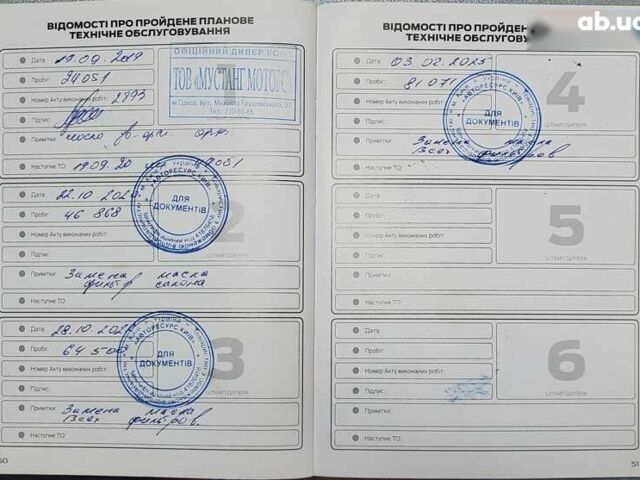 ВІДОМОСТІ ПРО ПРОЙДЕНЕ ПЛАНОВЕ
ТЕХНІЧНЕ ОБСЛУГОВУВАННЯ
Дата: 19.09.2019
Пробіг: 24051
Номер Акту виконаних робіт: 2893
Підпис:
Примітки:
Наступне ТО: 19.09.20
ОФІЦІЙНИЙ ДИЛЕР
ТОВ "МУСТАНГ МОТОРС"
м.Одеса, вул.
1
Дата: 22.10
Пробіг: 46 868
Номер Акту виконаних робіт:
Підпис:
Примітки: Замена масла
фильтр салона
Наступне ТО:
2
ШТАМП ДИЛЕРА
Україна
"АВТОРЕСУРС КИЇВ"
ДЛЯ
ДОКУМЕНТІВ
Дата: 28.10
Пробіг: 64 500
Номер Акту виконаних робіт:
Підпис:
Примітки: Замена масла
Всех фильтров.
Наступне ТО:
3
ШТАМП ДИЛЕРА
Україна
"АВТОРЕСУРС КИЇВ"
ДЛЯ
ДОКУМЕНТІВ
50
ВІДОМОСТІ ПРО ПРОЙДЕН
ТЕХНІЧНЕ ОБСЛУГОВУ
ab.ua
Дата: 03.02.2025
Пробіг: 81 071
Номер Акту виконаних робіт:
Підпис:
Примітки: Замена масла
Всех фильтров
Наступне ТО:
4
ШТАМП ДИЛЕРА
"АВТОРЕСУРС КИЇВ"
ДЛЯ
ДОКУМЕНТІВ
Дата:
Пробіг:
Номер Акту виконаних робіт:
Підпис:
Примітки:
Наступне ТО:
5
ШТАМП ДИЛЕРА
Дата:
Пробіг:
Номер Акту виконаних робіт:
Підпис:
Примітки:
Наступне ТО:
6
ШТАМП ДИЛЕРА
51